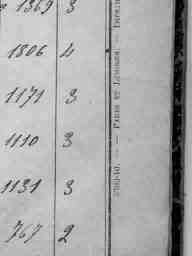 1369 3
1806 4
1171 3
1110 3
1131 3
767 2
— PARIS ET LIMOGES. —